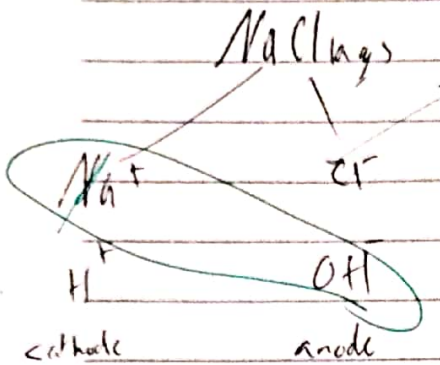 NaCl(aq)
Na⁺ Cl⁻
H⁺ OH⁻
cathode anode